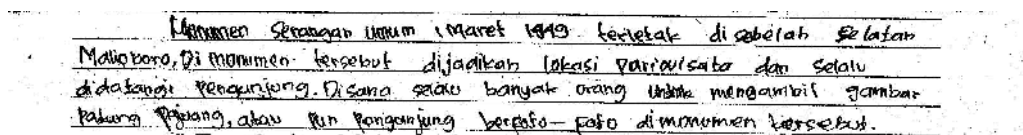 Monumen Serangan Umum 1 Maret 1949 terletak di sebelah selatan
Malioboro, Di monumen tersebut dijadikan lokasi pariwisata dan selalu
didatangi pengunjung. Disana selalu banyak orang untuk mengambil gambar
Patung Pejuang, atau pun pengunjung berfoto-foto dimonumen tersebut.